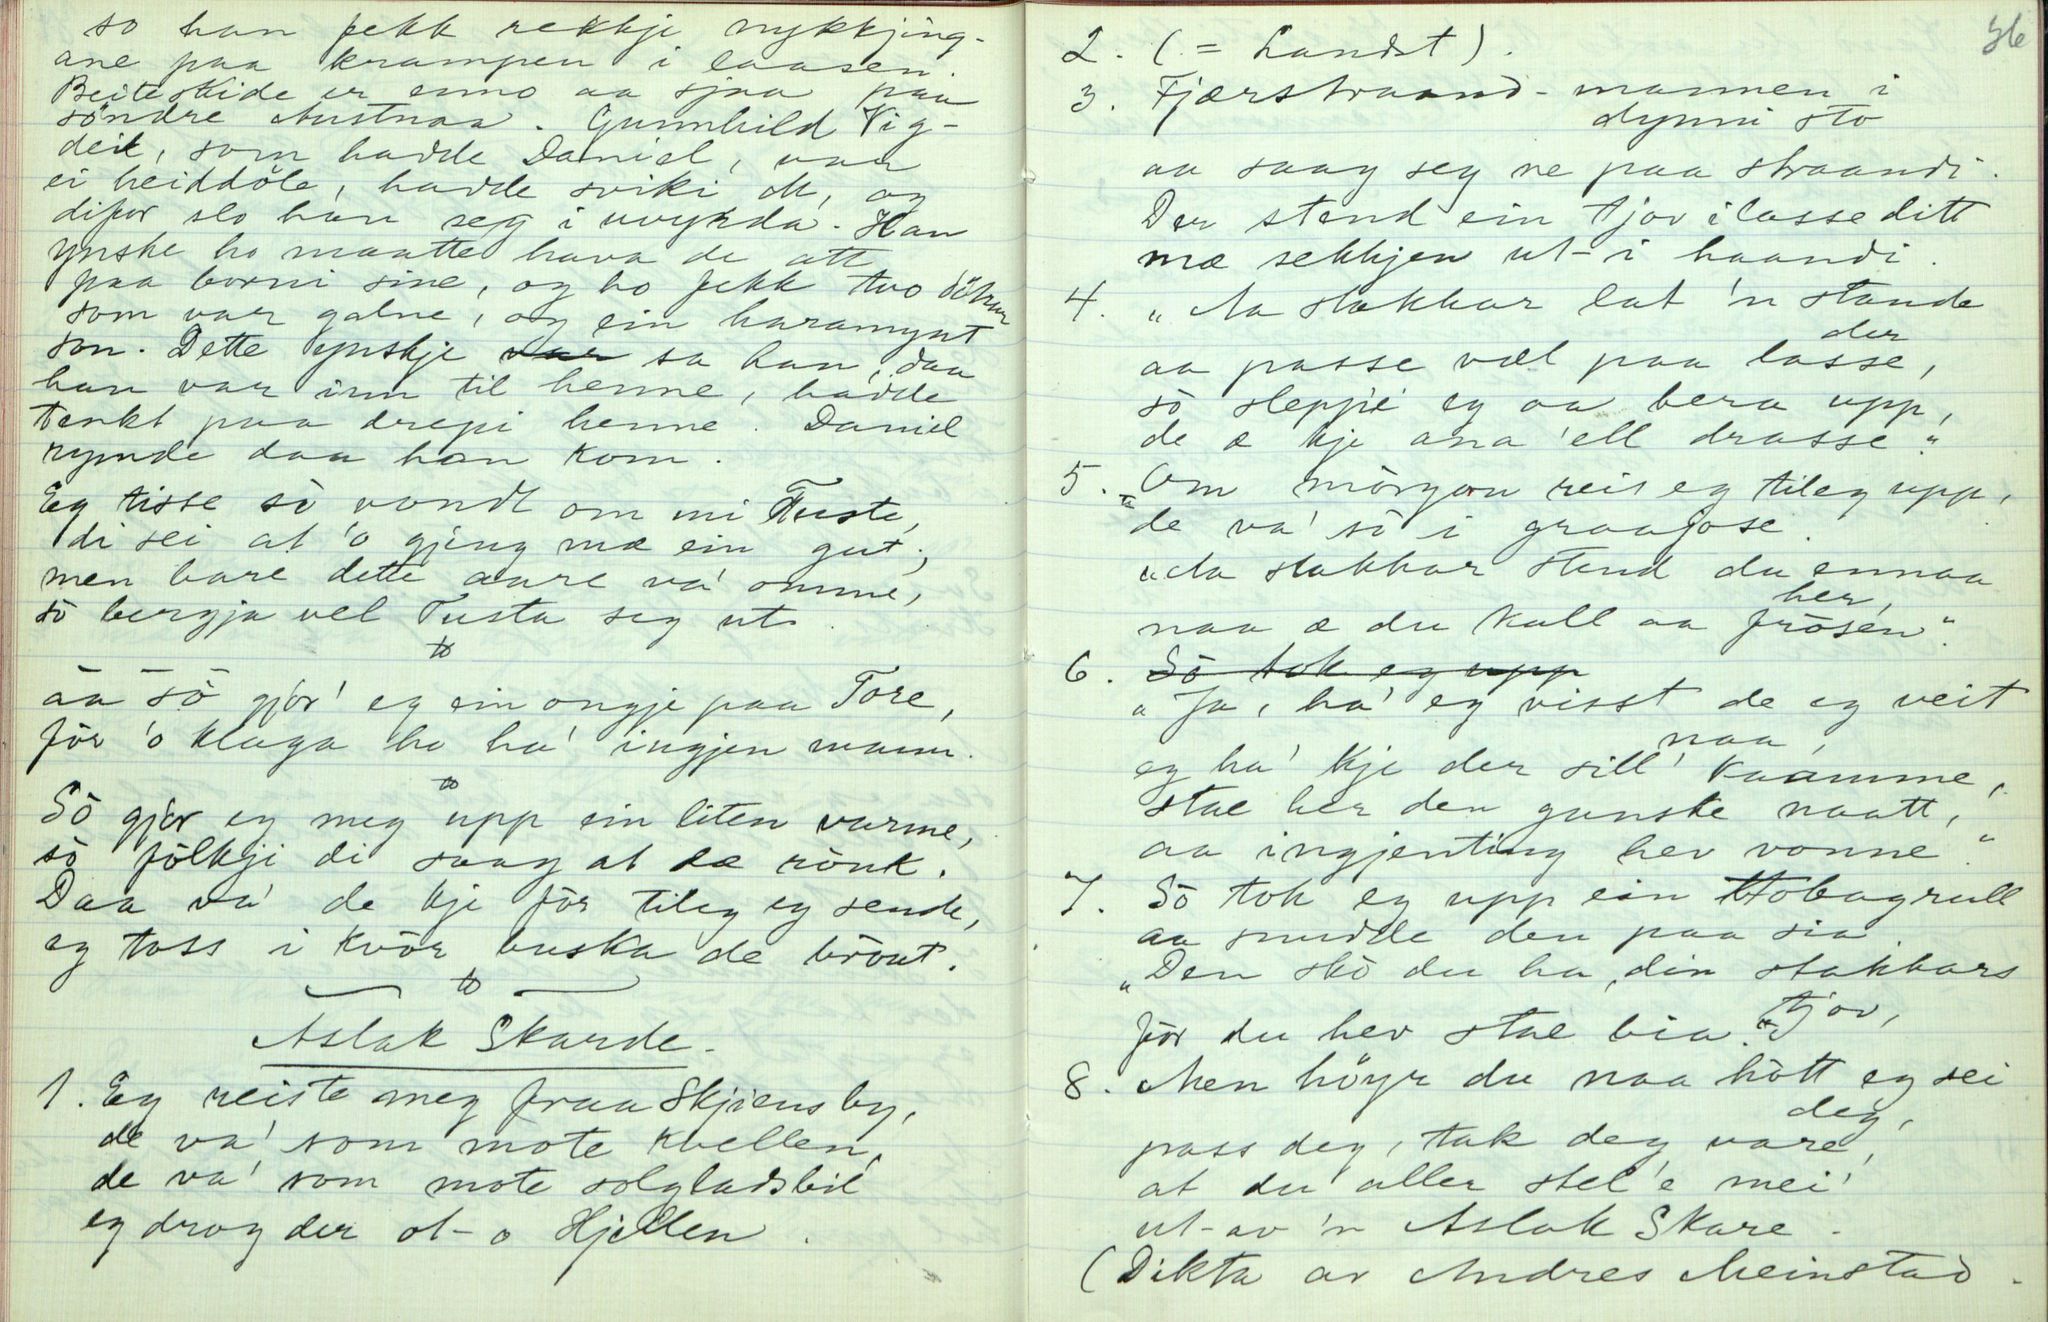 so han fekk rekkje nykkjing-
ane paa krampen i laasen.
Beiteskide er enno aa sjaa paa
söndre Austnaa. Gunnhild Vig-
deil, som hadde Daniel, var
ei heiddöle, hadde sviki M, og
difor slo han seg i uvyrda. Han
ynske ho maatte hava de att
paa borni sine, og ho fekk tvo döttrar
som var galne, og ein haramynt
son. Dette ynskje sa han, daa
han var inn til henne, hadde
tenkt paa drepi henne. Daniel
rymde daa han kom.
Eg tisse sò vondt om mi Tuste,
di sei at 'o gjeng mæ ein gut;
men bare dette aare va' omme,
sò bergja vel Tusta seg ut.
aa sò gjor' eg ein ongje paa Tore,
för 'o klaga ho ha' ingjen mann.
Sò gjor eg meg upp ein liten varme,
sò fölkji di saag at dæ rönk.
Daa va' de kje för tileg eg sende,
eg tass i kvör buska de bröut.
Aslak Skarde.
1. Eg reiste meg fraa Skjiensby,
de va' som mote kvellen,
de va' som mote solgladsbil
eg drog der ot-o Hjellen.
36
2. (= Landst).
3. Fjærstraand-mannen i
dynni sto
aa saag seg ne paa straandi.
Der stend ein tjov i lasse ditt
mæ sekkjen ut-i haandi.
4. "Aa stakkar lat 'n stande
der
aa passe væl paa lasse,
sò sleppi eg aa bera upp,
de æ kje ana 'ell drasse."
5. Om mòrgon reis eg tileg upp,
de va' sò i graaljose.
"Aa stakkar stend du ennaa
her,
naa æ du kall aa frösen".
6. Sò tok eg upp
"Ja, ha' eg visst de eg veit
naa,
eg ha' kje der sill' kaamme,
stae her den ganske naatt,
aa ingjenting hev vonne."
7. Sò tok eg upp ein tobagrull
aa snudde den paa sia.
"Den skò du ha, din stakkars
tjov,
för du hev stae bia."
8. Men höyr du naa hòtt eg sei
deg,
pass deg, tak deg vare,
at du aller stel'e mei'
ut-av 'n Aslak Skare.
(Dikta av Andres Meinstad.